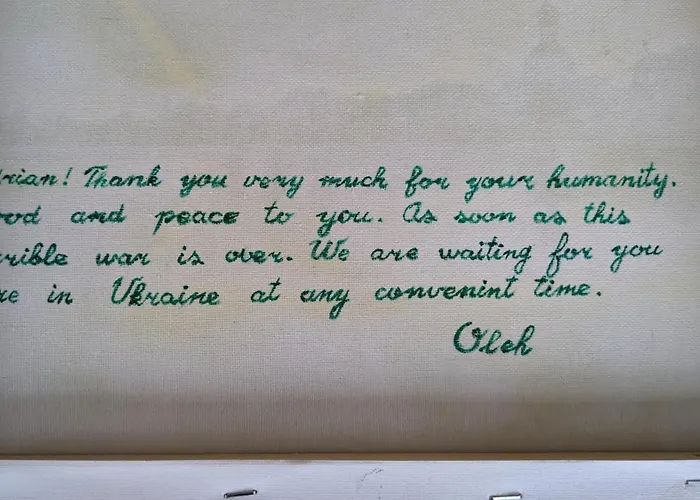 rian! Thank you very much for your humanity.
ood and peace to you. As soon as this
rrible war is over. We are waiting for you
re in Ukraine at any convenint time.
Oleh